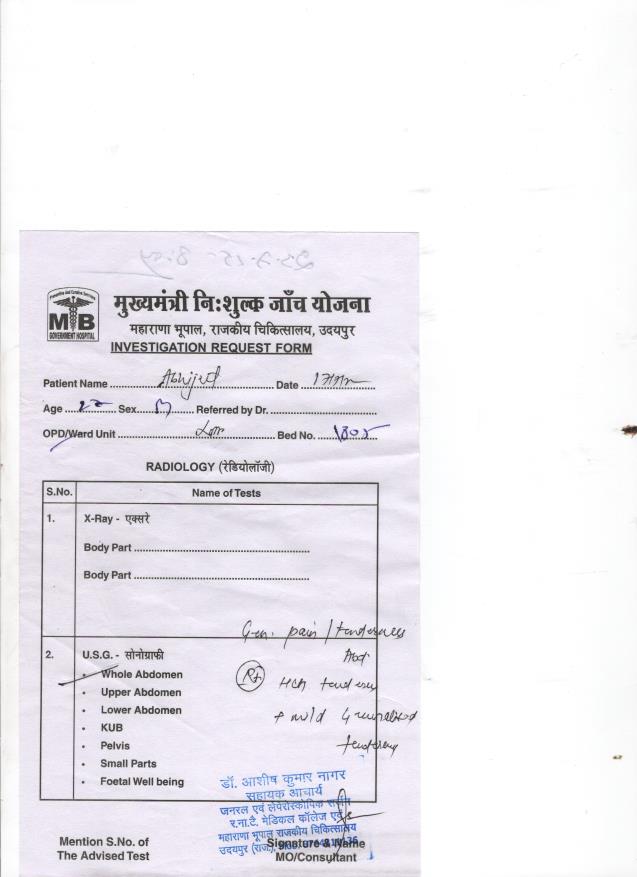 Preventive And Curative Services
MB
GOVERNMENT HOSPITAL
मुख्यमंत्री निःशुल्क जाँच योजना
महाराणा भूपाल, राजकीय चिकित्सालय, उदयपुर
INVESTIGATION REQUEST FORM
Patient Name Abhijeet Date
Age 22 Sex M Referred by Dr.
OPD/Ward Unit Bed No. 1805
RADIOLOGY (रेडियोलॉजी)
S.No. Name of Tests
1. X-Ray - एक्सरे
Body Part
Body Part
Gen. pain / tenderness
2. U.S.G. - सोनोग्राफी
Whole Abdomen
Upper Abdomen
Lower Abdomen
KUB
Pelvis
Small Parts
Foetal Well being
Rt tenderness
+ mild Generalized
tenderness
डॉ. आशीष कुमार नागर
सहायक आचार्य
जनरल एवं लेप्रोस्कोपिक सर्जन
र.ना.टै. मेडिकल कॉलेज एवं
महाराणा भूपाल राजकीय चिकित्सालय
उदयपुर (राज.)
Mention S.No. of
The Advised Test
Signature & Name
MO/Consultant